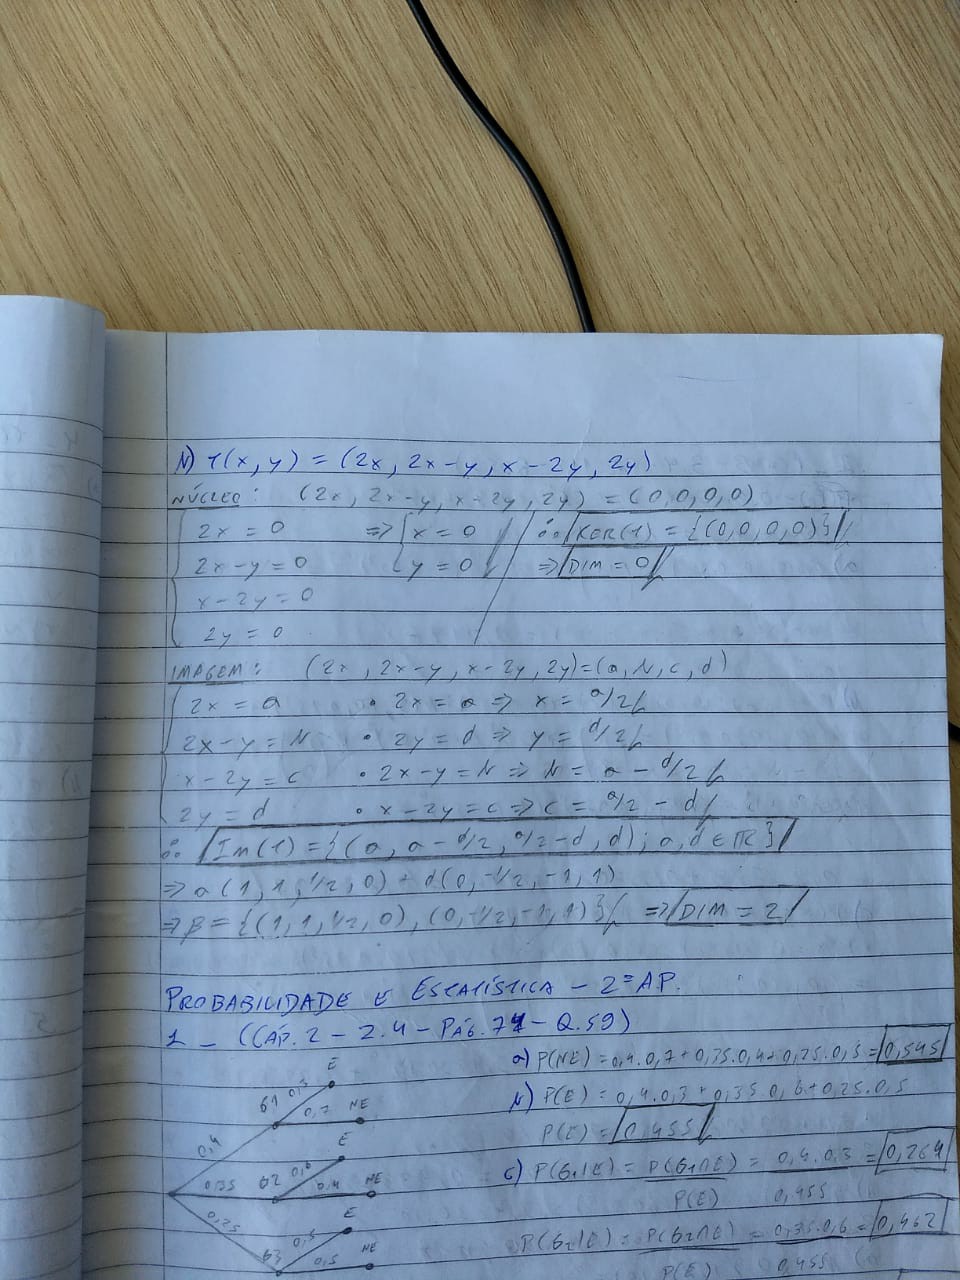 b) T(x, y) = (2x, 2x-y, x-2y, 2y)
NÚCLEO: (2x, 2x-y, x-2y, 2y) = (0,0,0,0)
2x = 0 => x = 0 ∴ KER(T) = {(0,0,0,0)}
2x-y = 0 y = 0 => DIM = 0
x-2y = 0
2y = 0
IMAGEM: (2x, 2x-y, x-2y, 2y) = (a, b, c, d)
2x = a • 2x = a => x = a/2
2x-y = b • 2y = d => y = d/2
x-2y = c • 2x-y = b => b = a - d/2
2y = d • x-2y = c => c = a/2 - d
∴ Im(T) = {(a, a-d/2, a/2-d, d); a, d ∈ IR}
=> a(1, 1, 1/2, 0) + d(0, -1/2, -1, 1)
=> β = {(1, 1, 1/2, 0), (0, -1/2, -1, 1)} => DIM = 2
PROBABILIDADE E ESTATÍSTICA - 2ª AP.
1 - (CÁP. 2 - 2.4 - PÁG. 71 - Q.59)
a) P(NE) = 0,4.0,7 + 0,35.0,4 + 0,25.0,5 = 0,545
b) P(E) = 0,4.0,3 + 0,35.0,6 + 0,25.0,5
P(E) = 0,455
c) P(G1|E) = P(G1∩E) = 0,4.0,3 = 0,264
P(E) 0,455
P(G2|E) = P(G2∩E) = 0,35.0,6 = 0,462
P(E) 0,455
0,4 G1 0,3 E
0,7 NE
0,35 G2 0,6 E
0,4 NE
0,25 G3 0,5 E
0,5 NE